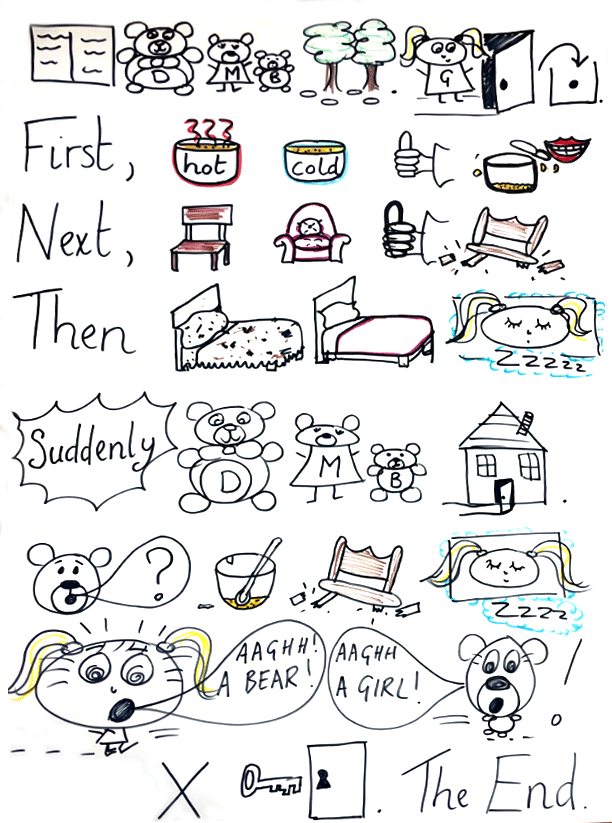 D M B G
First, hot cold
Next,
Then
Zzzzz
Suddenly D M B
?
Zzzz
AAGHH! AAGHH
A BEAR! A GIRL! !
X The End.